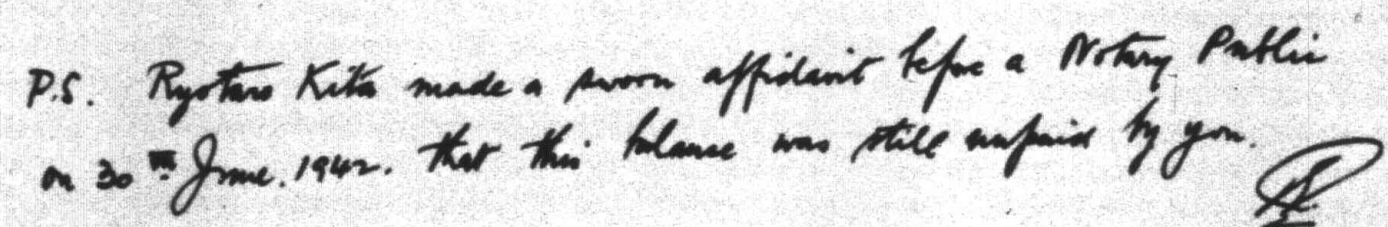 P.S. Ryotaro Kita made a sworn affidavit before a Notary Public
on 30th June. 1942. that this balance was still unpaid by you.